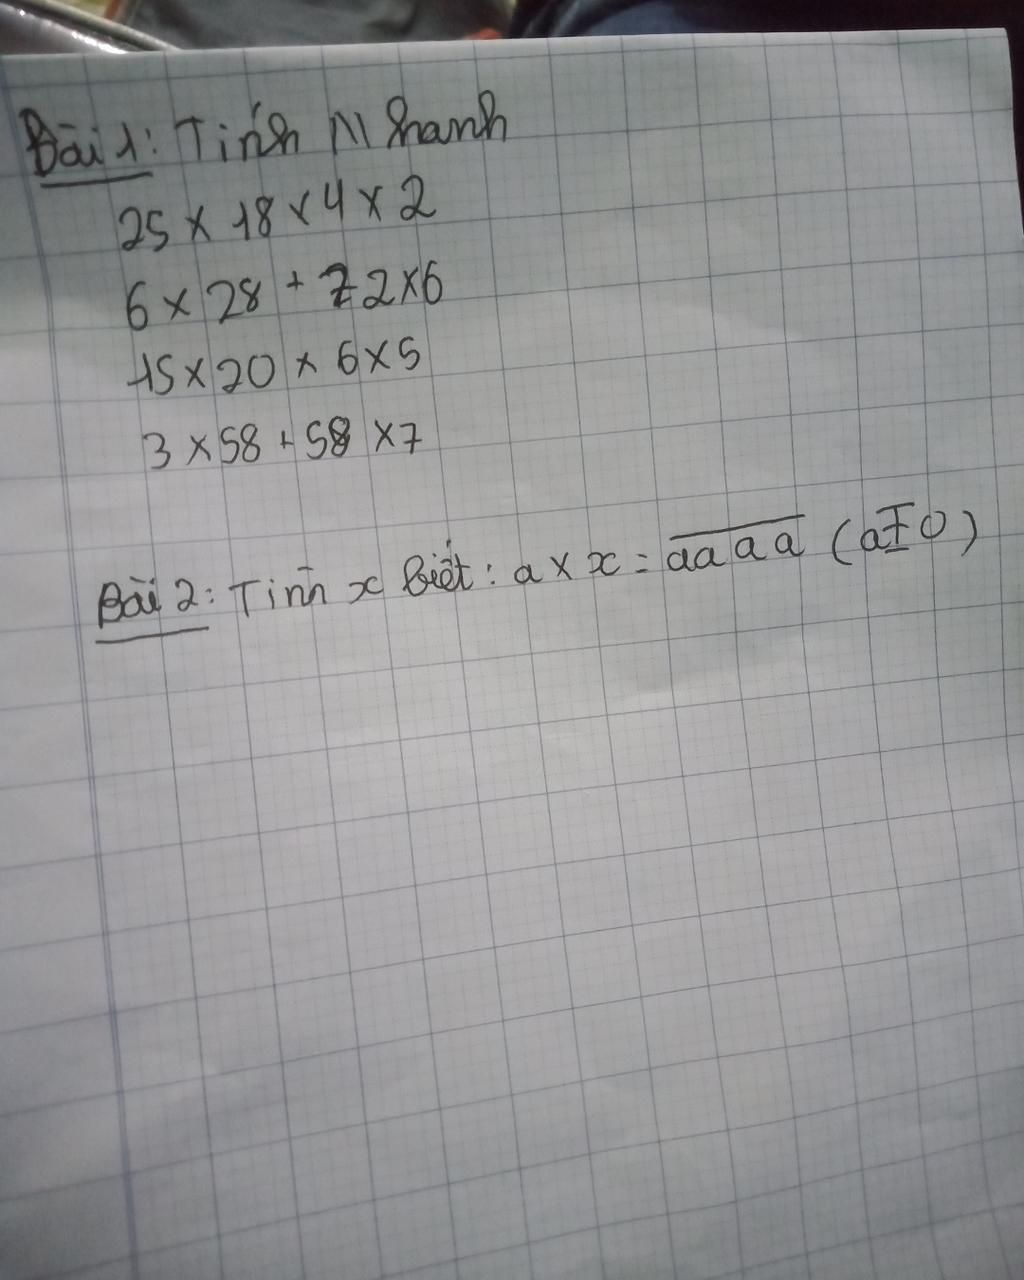 Bài 1: Tính Nhanh
25 x 18 x 4 x 2
6 x 28 + 72 x 6
15 x 20 x 6 x 5
3 x 58 + 58 x 7
Bài 2: Tính x biết: a x x = a̅a̅a̅a̅ (a ≠ 0)